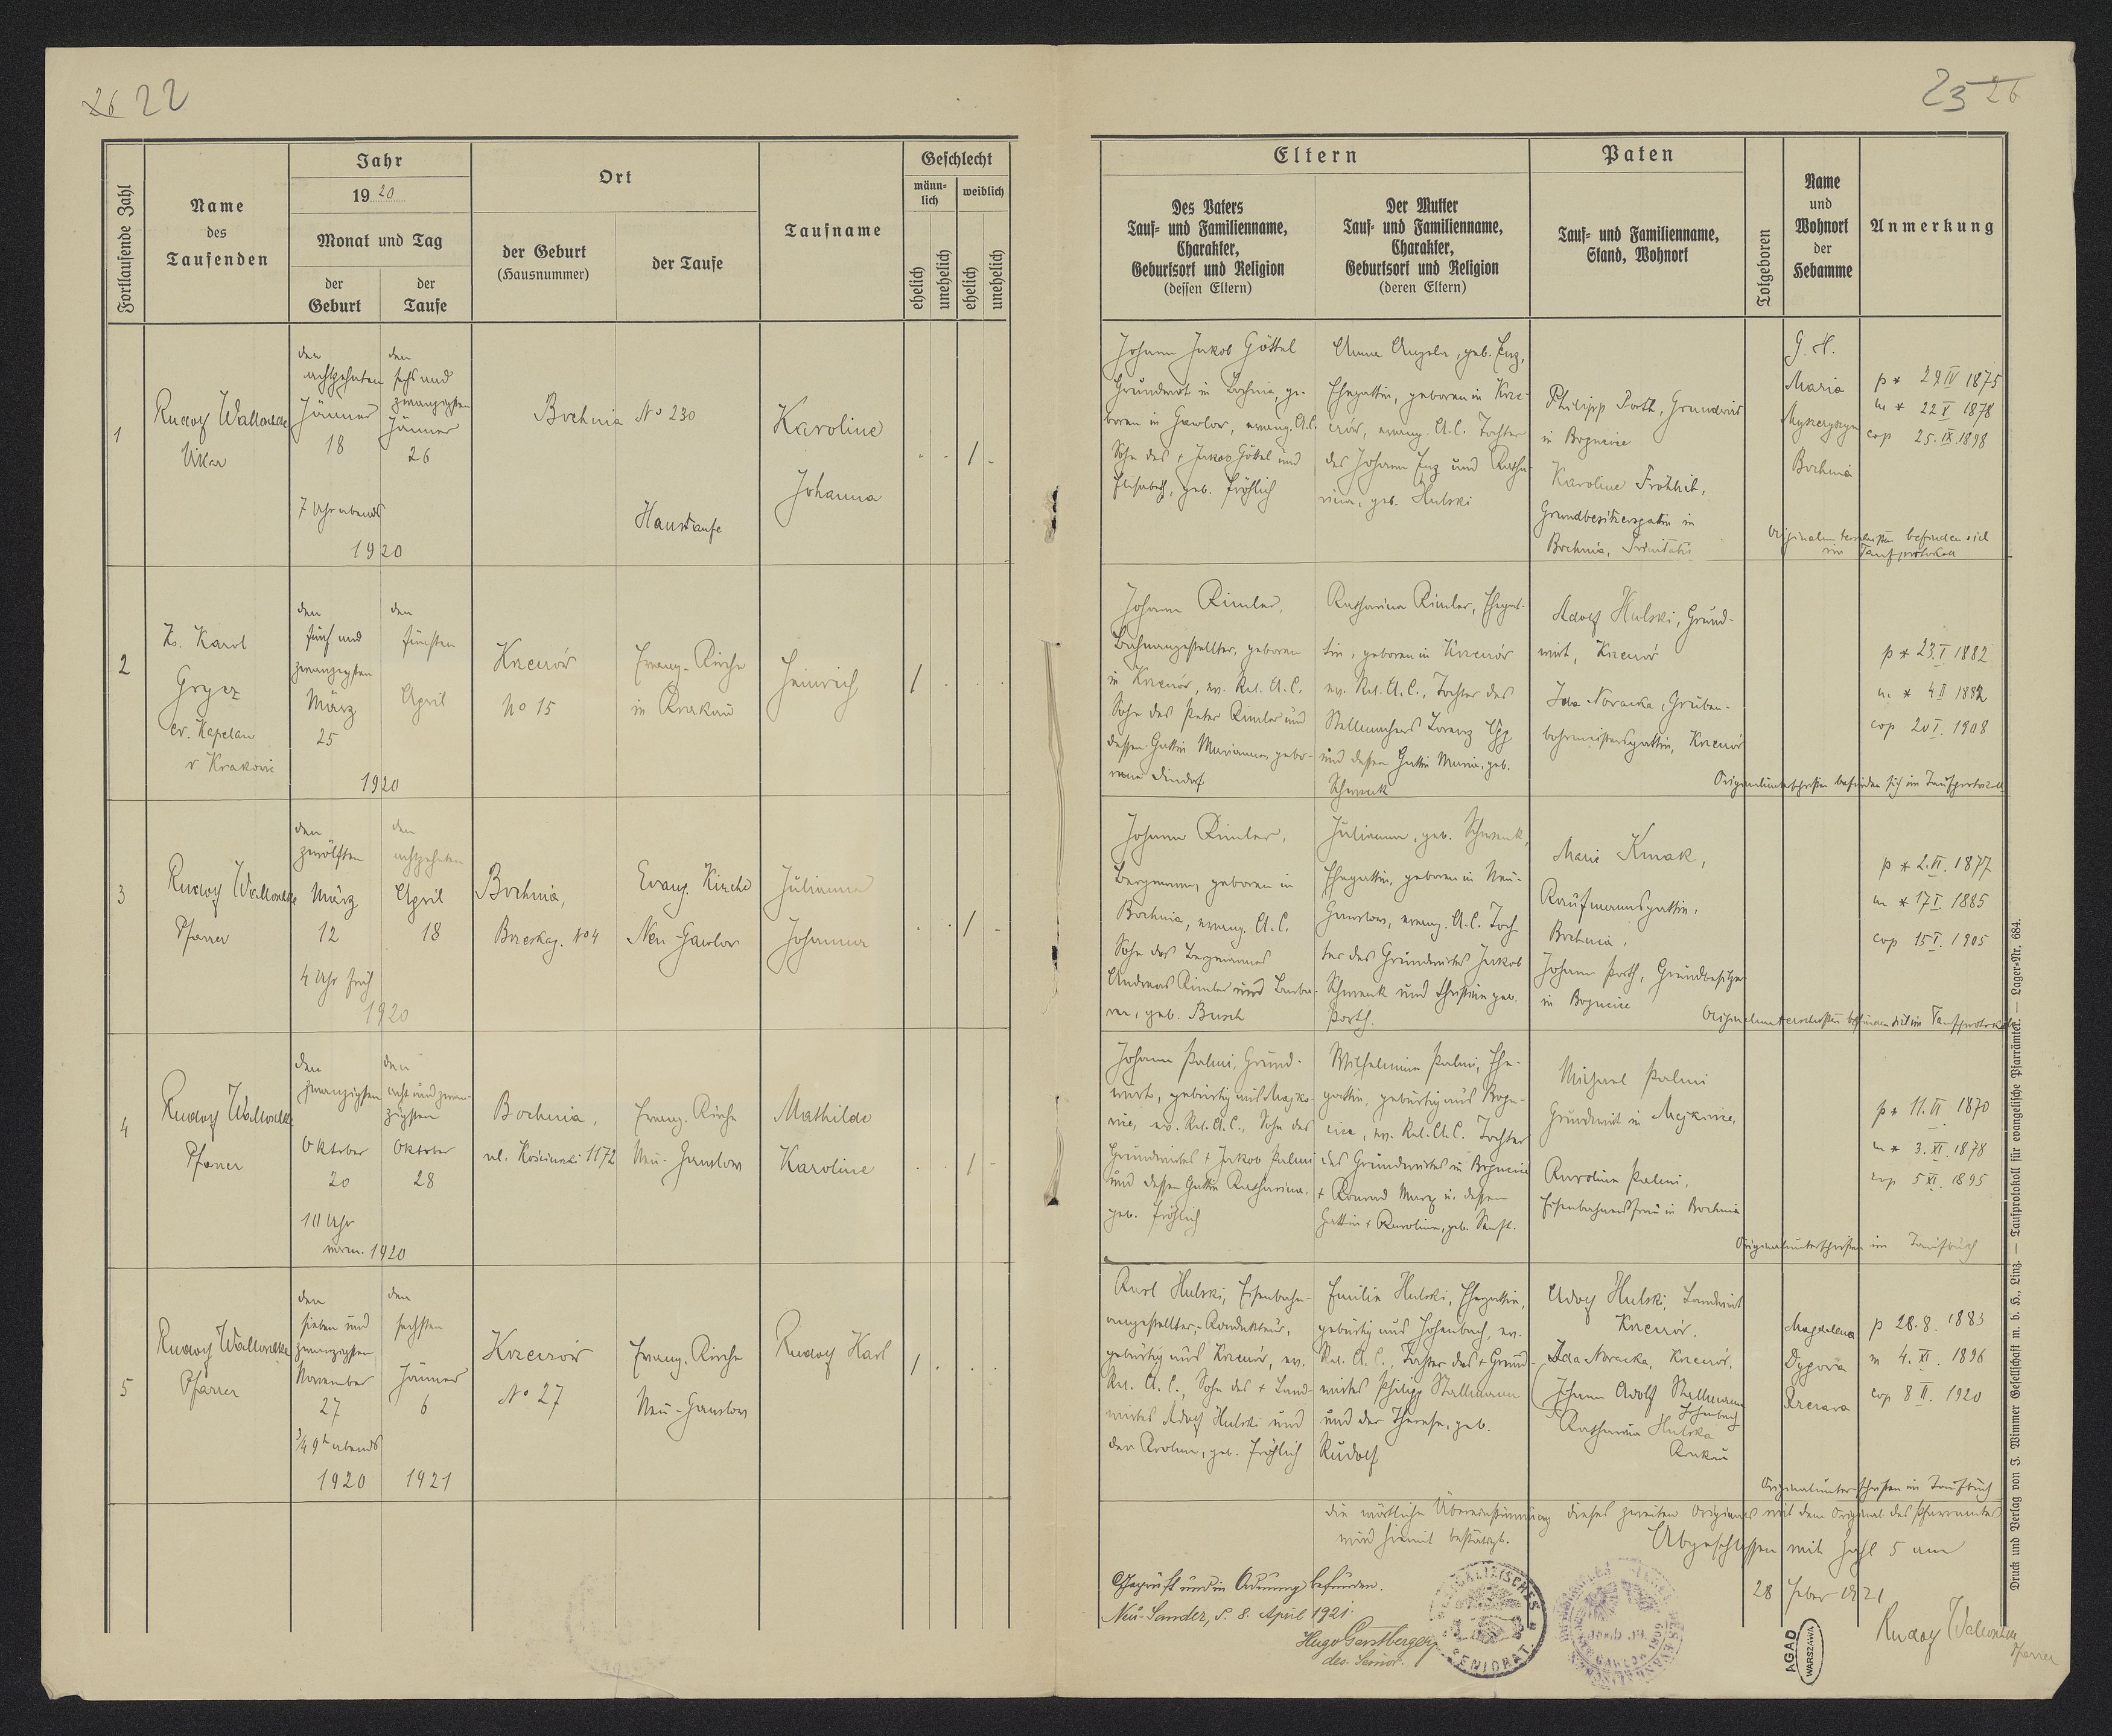 26 22
Fortlaufende Zahl
Name
des
Taufenden
Jahr
1920
Monat und Tag
der
Geburt
der
Taufe
Ort
der Geburt
(Hausnummer)
der Taufe
Taufname
Geschlecht
männ-
lich
weiblich
ehelich
unehelich
ehelich
unehelich
1
Rudolf
Vikar
den
achtzehnten
Jänner
18
7 Uhr abends
den
sechs und
zwanzigsten
Jänner
26
1920
Bochnia No 230
Haustaufe
Karoline
Johanna
1
2
Ks. Karol
Grycz
ev. Kapelan
v Krakowie
den
fünf und
zwanzigsten
März
25
den
fünften
April
1920
No 15
Evang. Kirche
in Krakau
Heinrich
1
3
Rudolf
Pfarrer
den
zwölften
März
12
4 Uhr früh
den
achtzehnten
April
18
1920
Bochnia,
No 4
Evang. Kirche
Neu-Gawlow
Julianna
Johanna
1
4
Rudolf
Pfarrer
den
zwanzigsten
Oktober
20
den
acht und zwan-
zigsten
Oktober
28
1920
Bochnia,
1172
Evang. Kirche
Neu-Gawlow
Mathilde
Karoline
1
5
Rudolf
Pfarrer
den
sieben und
zwanzigsten
November
27
3/4 9h abends
1920
den
sechsten
Jänner
6
1921
No 27
Evang. Kirche
Neu-Gawlow
Rudolf Karl
1
25 26
Eltern
Des Vaters
Tauf- und Familienname,
Charakter,
Geburtsort und Religion
(dessen Eltern)
Der Mutter
Tauf- und Familienname,
Charakter,
Geburtsort und Religion
(deren Eltern)
Paten
Tauf- und Familienname,
Stand, Wohnort
Totgeboren
Name
und
Wohnort
der
Hebamme
Anmerkung
Johann Jakob Göttel
Grundwirt in Bochnia, ge-
boren in Gawlow, evang. A.C.
Sohn des + Jakob Göttel und
Elisabeth, geb. Fröhlich
Anna Angela, geb. Enz,
Ehegattin, geboren in
evang. A.C. Tochter
des Johann Enz und Katha-
rina, geb. Hulski
Philipp Porth, Grundwirt
in Bogucice
Karoline Fröhlich,
Grundbesitzersgattin in
Bochnia,
G. H.
Maria
Bochnia
p * 29 IV 1875
m * 22 X 1878
cop 25. IX. 1898
Originalunterschriften befinden sich
im Taufprotokoll
Johann Rimler,
geboren
ev. Rel. A.C.
Sohn des Peter Rimler und
dessen Gattin Marianna gebo-
rene
Katharina Rimler, Ehegat-
tin, geboren in
ev. Rel. A.C., Tochter des
Stellmachers Lorenz
und dessen Gattin Maria, geb.
Schwenk
Adolf Hulski, Grund-
wirt,
Ida Noracka, Gruben-
bohrmeistersgattin,
p * 23. I 1882
m * 4 II 1882
cop 20 I. 1908
Originalunterschriften befinden sich im Taufprotokoll
Johann Rimler,
Bergmann, geboren in
Bochnia, evang. A.C.
Sohn des Bergmannes
Andreas Rimler und Barba-
ra, geb. Busch
Julianna, geb. Schwenk,
Ehegattin, geboren in Neu-
Gawlow, evang. A.C. Toch
ter des Grundwirtes Jakob
Schwenk und Christine geb.
Porth.
Marie Kmak,
Kaufmannsgattin,
Bochnia,
Johann Porth, Grundbesitzer
in Bogucice
p * 2. VI. 1877
m * 17 I 1885
cop 15 I. 1905
Originalunterschriften befinden sich im Taufprotokoll
Johann Palmi, Grund-
wirt, gebürtig aus
ev. Rel. A.C., Sohn des
Grundwirtes + Jakob Palmi
und dessen Gattin Katharina,
geb. Fröhlich
Wilhelmine Palmi, Ehe-
gattin, gebürtig aus Bogu-
cice, ev. Rel. A.C. Tochter
des Grundwirtes in Bogucice
+ Konrad Marz u. dessen
Gattin + Karoline, geb. Senft.
Michael Palmi
Grundwirt in
Karoline Palmi,
in Bochnia
p * 11. VI 1870
m * 3. XI. 1878
cop 5 XI. 1895
Originalunterschriften im Taufbuch
Karl Hulski, Eisenbahn-
angestellter,- Kondukteur,
gebürtig aus ev.
Rel. A.C., Sohn des + Land-
wirtes Adolf Hulski und
geb. Fröhlich
Emilie Hulski, Ehegattin,
gebürtig aus Hohenbach, ev.
Rel. A.C., Tochter des + Grund-
wirtes Philipp Stallmann
und der Therese, geb.
Rudolf
Adolf Hulski, Landwirt
Ida Noracka,
Johann Adolf Stallmann
Hohenbach
Katharina Hulska
Krakau
Magdalena
p 28. 8. 1883
m 4. XI. 1896
cop 8 II. 1920
Originalunterschriften im Taufbuch
Die wörtliche Übereinstimmung dieses zweiten Originales mit dem Original des Pfarramtes
wird hiemit bestätigt.
Abgeschlossen mit Zahl 5 am
28 Feber 1921
Rudolf
Pfarrer
Geprüft und in Ordnung befunden.
Neu-Sandez, d. 8. April 1921.
Hugo Gerstberger
des. Senior.
SENIORAT
AGAD
WARSZAWA
Druck und Verlag von J. Wimmer Gesellschaft m. b. H., Linz. — Taufprotokoll für evangelische Pfarrämter. — Lager-Nr. 684.